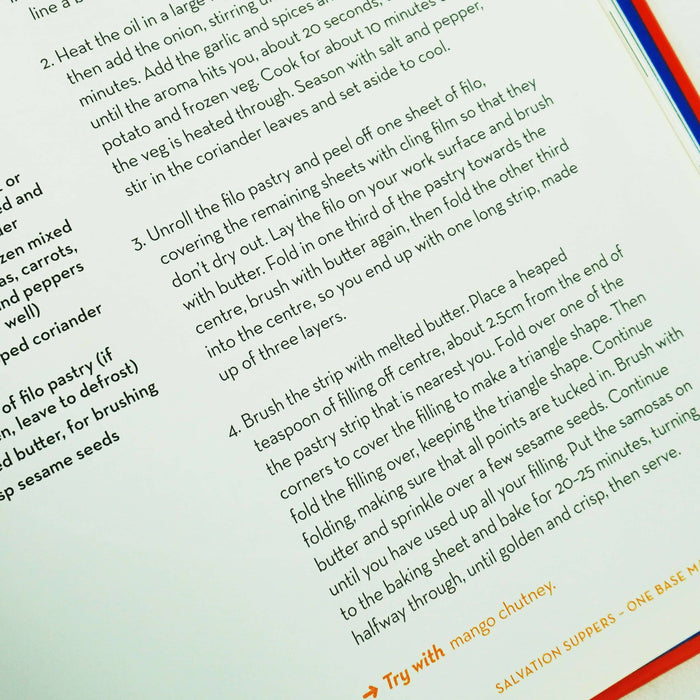 line a b
2. Heat the oil in a large
then add the onion, stirring
minutes. Add the garlic and spices and
until the aroma hits you, about 20 seconds,
potato and frozen veg. Cook for about 10 minutes
the veg is heated through. Season with salt and pepper,
stir in the coriander leaves and set aside to cool.
3. Unroll the filo pastry and peel off one sheet of filo,
covering the remaining sheets with cling film so that they
don't dry out. Lay the filo on your work surface and brush
with butter. Fold in one third of the pastry towards the
centre, brush with butter again, then fold the other third
into the centre, so you end up with one long strip, made
up of three layers.
4. Brush the strip with melted butter. Place a heaped
teaspoon of filling off centre, about 2.5cm from the end of
the pastry strip that is nearest you. Fold over one of the
corners to cover the filling to make a triangle shape. Then
fold the filling over, keeping the triangle shape. Continue
folding, making sure that all points are tucked in. Brush with
butter and sprinkle over a few sesame seeds. Continue
until you have used up all your filling. Put the samosas on
to the baking sheet and bake for 20–25 minutes, turning
halfway through, until golden and crisp, then serve.
→ Try with mango chutney.
SALVATION SUPPERS – ONE BASE
or
ed and
der
zen mixed
as, carrots,
nd peppers
well)
ped coriander
of filo pastry (if
n, leave to defrost)
ed butter, for brushing
sp sesame seeds